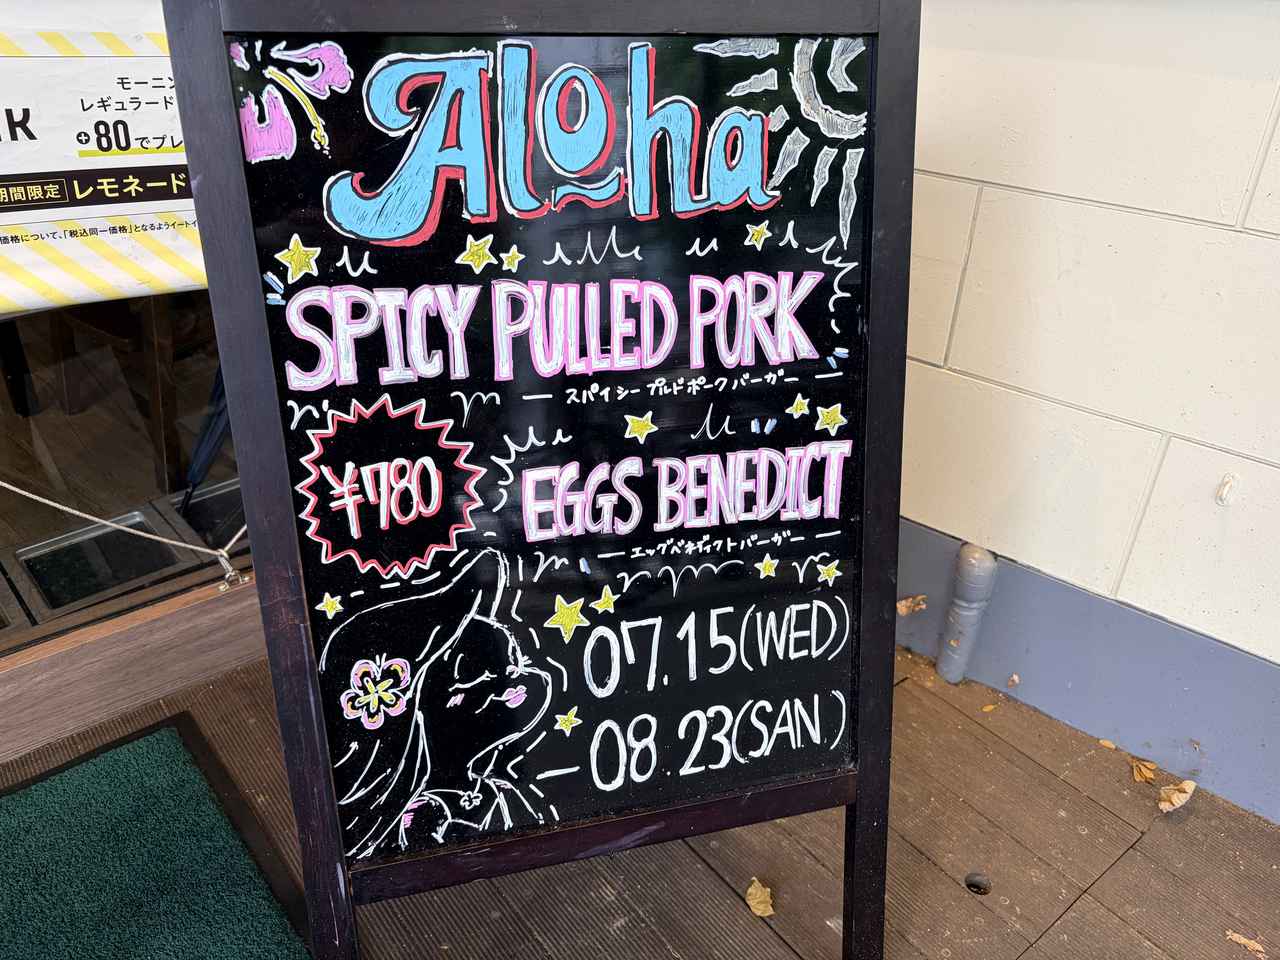 モーニン
レギュラード
+80でプレ
期間限定 レモネード
価格について、「税込同一価格」となるようイートイ
Aloha
SPICY PULLED PORK
スパイシープルドポークバーガー
¥780
EGGS BENEDICT
エッグベネディクトバーガー
07.15(WED)
-08.23(SAN.)